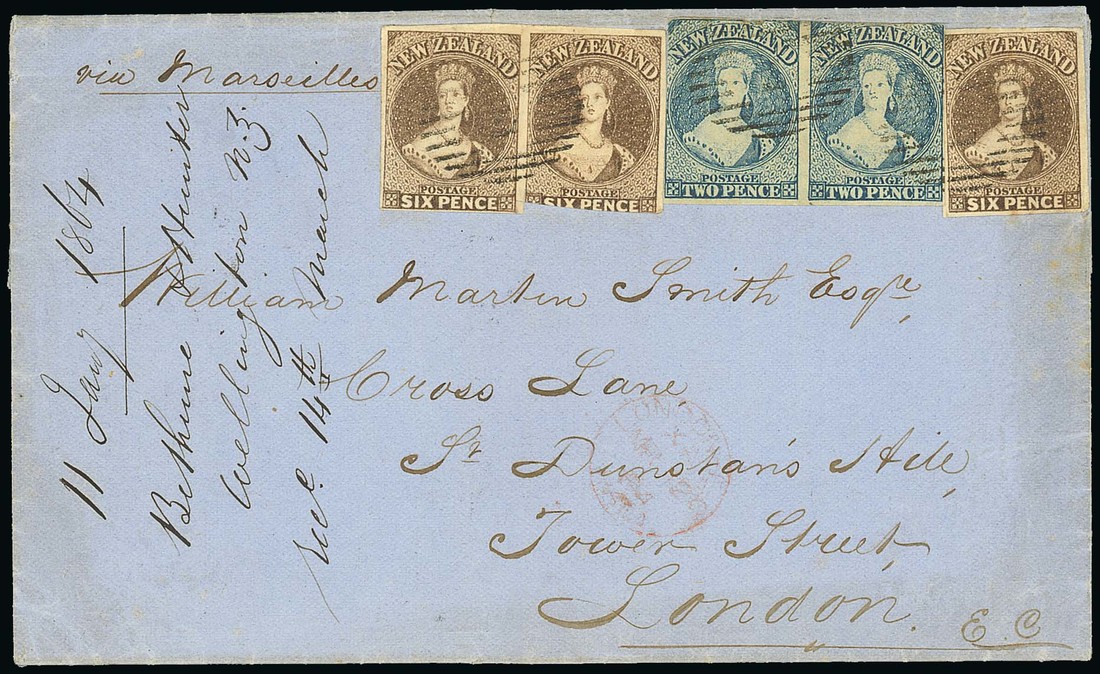 via Marseilles
NEW ZEALAND
POSTAGE
SIX PENCE
NEW ZEALAND
POSTAGE
SIX PENCE
NEW ZEALAND
POSTAGE
TWO PENCE
NEW ZEALAND
POSTAGE
TWO PENCE
NEW ZEALAND
POSTAGE
SIX PENCE
William Martin Smith Esqre,
Cross Lane,
St Dunstan's Hill,
Tower Street,
London.
E. C
11 Jany 1864
Bethune & Hunter
Wellington N.Z.
rec. 14th March
LONDON